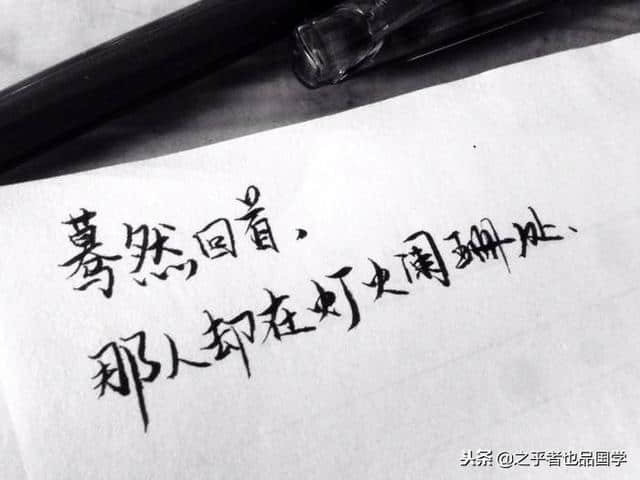 蓦然回首,
那人却在灯火阑珊处、
头条 @之乎者也品国学